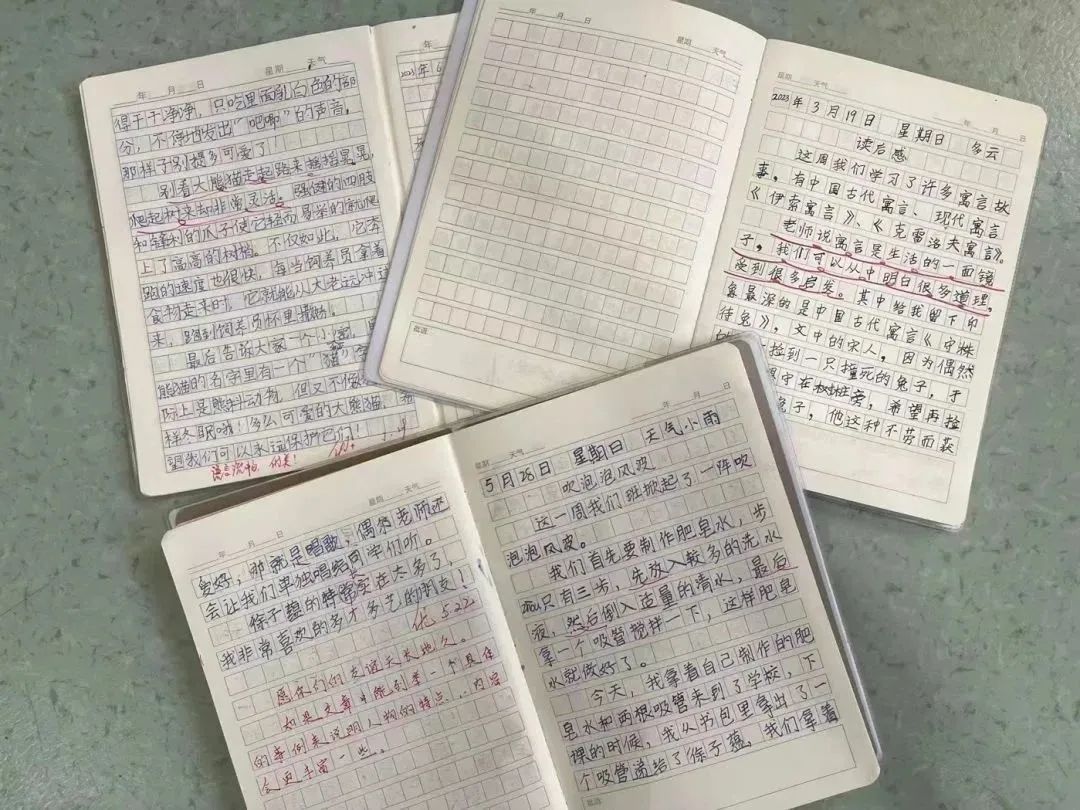 年 月 日 星期 天气
得干干净净,只吃里面乳白色的部
分,不停地发出“吧唧”的声音,
那样子别提多可爱了!
别看大熊猫走起路来摇摇晃晃,
爬起树来却非常灵活。强健的四肢
和锋利的爪子使它轻而易举的就爬
上了高高的树梢。不仅如此,它奔
跑的速度也很快,每当饲养员拿着
食物走来时,它就能从大老远冲过
来,跑到饲养员怀里撒娇。
最后告诉大家一个小密,
熊猫的名字里有一个“猫”字
际上是熊科动物,但又不像
样冬眠哦!多么可爱的大熊猫,希
望我们可以永远保护它们!
优!
年 月
2023年6
年 月 日
星期 天气
批语
星期 天气
年 月 日
2023年3月19日 星期日 多云
读后感
这周我们学习了许多寓言故
事。有中国古代寓言、现代寓言
《伊索寓言》、《克雷洛夫寓言》。
老师说寓言是生活的一面镜
子,我们可以从中明白很多道理,
受到很多启发。其中给我留下印
象最深的是中国古代寓言《守株
待兔》,文中的宋人,因为偶然
捡到一只撞死的兔子,才
守在树桩旁,希望再捡
兔子,他这种不劳而获
年 月 日 星期 天气
爱好,那就是唱歌,偶尔老师还
会让我们单独唱给同学们听。
徐子蕴的特常实在太多了,
我非常喜欢的多才多艺的朋友!
优 5.22
愿你们的友谊天长地久。
如果文章中能列举一个具体
的事例来说明人物的特点,内容
会更丰富一些。
星期 天气
年 月 日
5月28日 星期日 天气小雨
吹泡泡风波
这一周我们班掀起了一阵吹
泡泡风波。
我们首先要制作肥皂水,步
只有三步,先放入较多的洗水
液,然后倒入适量的清水,最后
拿一个吸管搅拌一下,这样肥皂
水就做好了。
今天,我拿着自己制作的肥
皂水和两根吸管来到了学校,下
课的时候,我从书包里拿出了一
个吸管递给了徐子蕴,我们拿着
批语